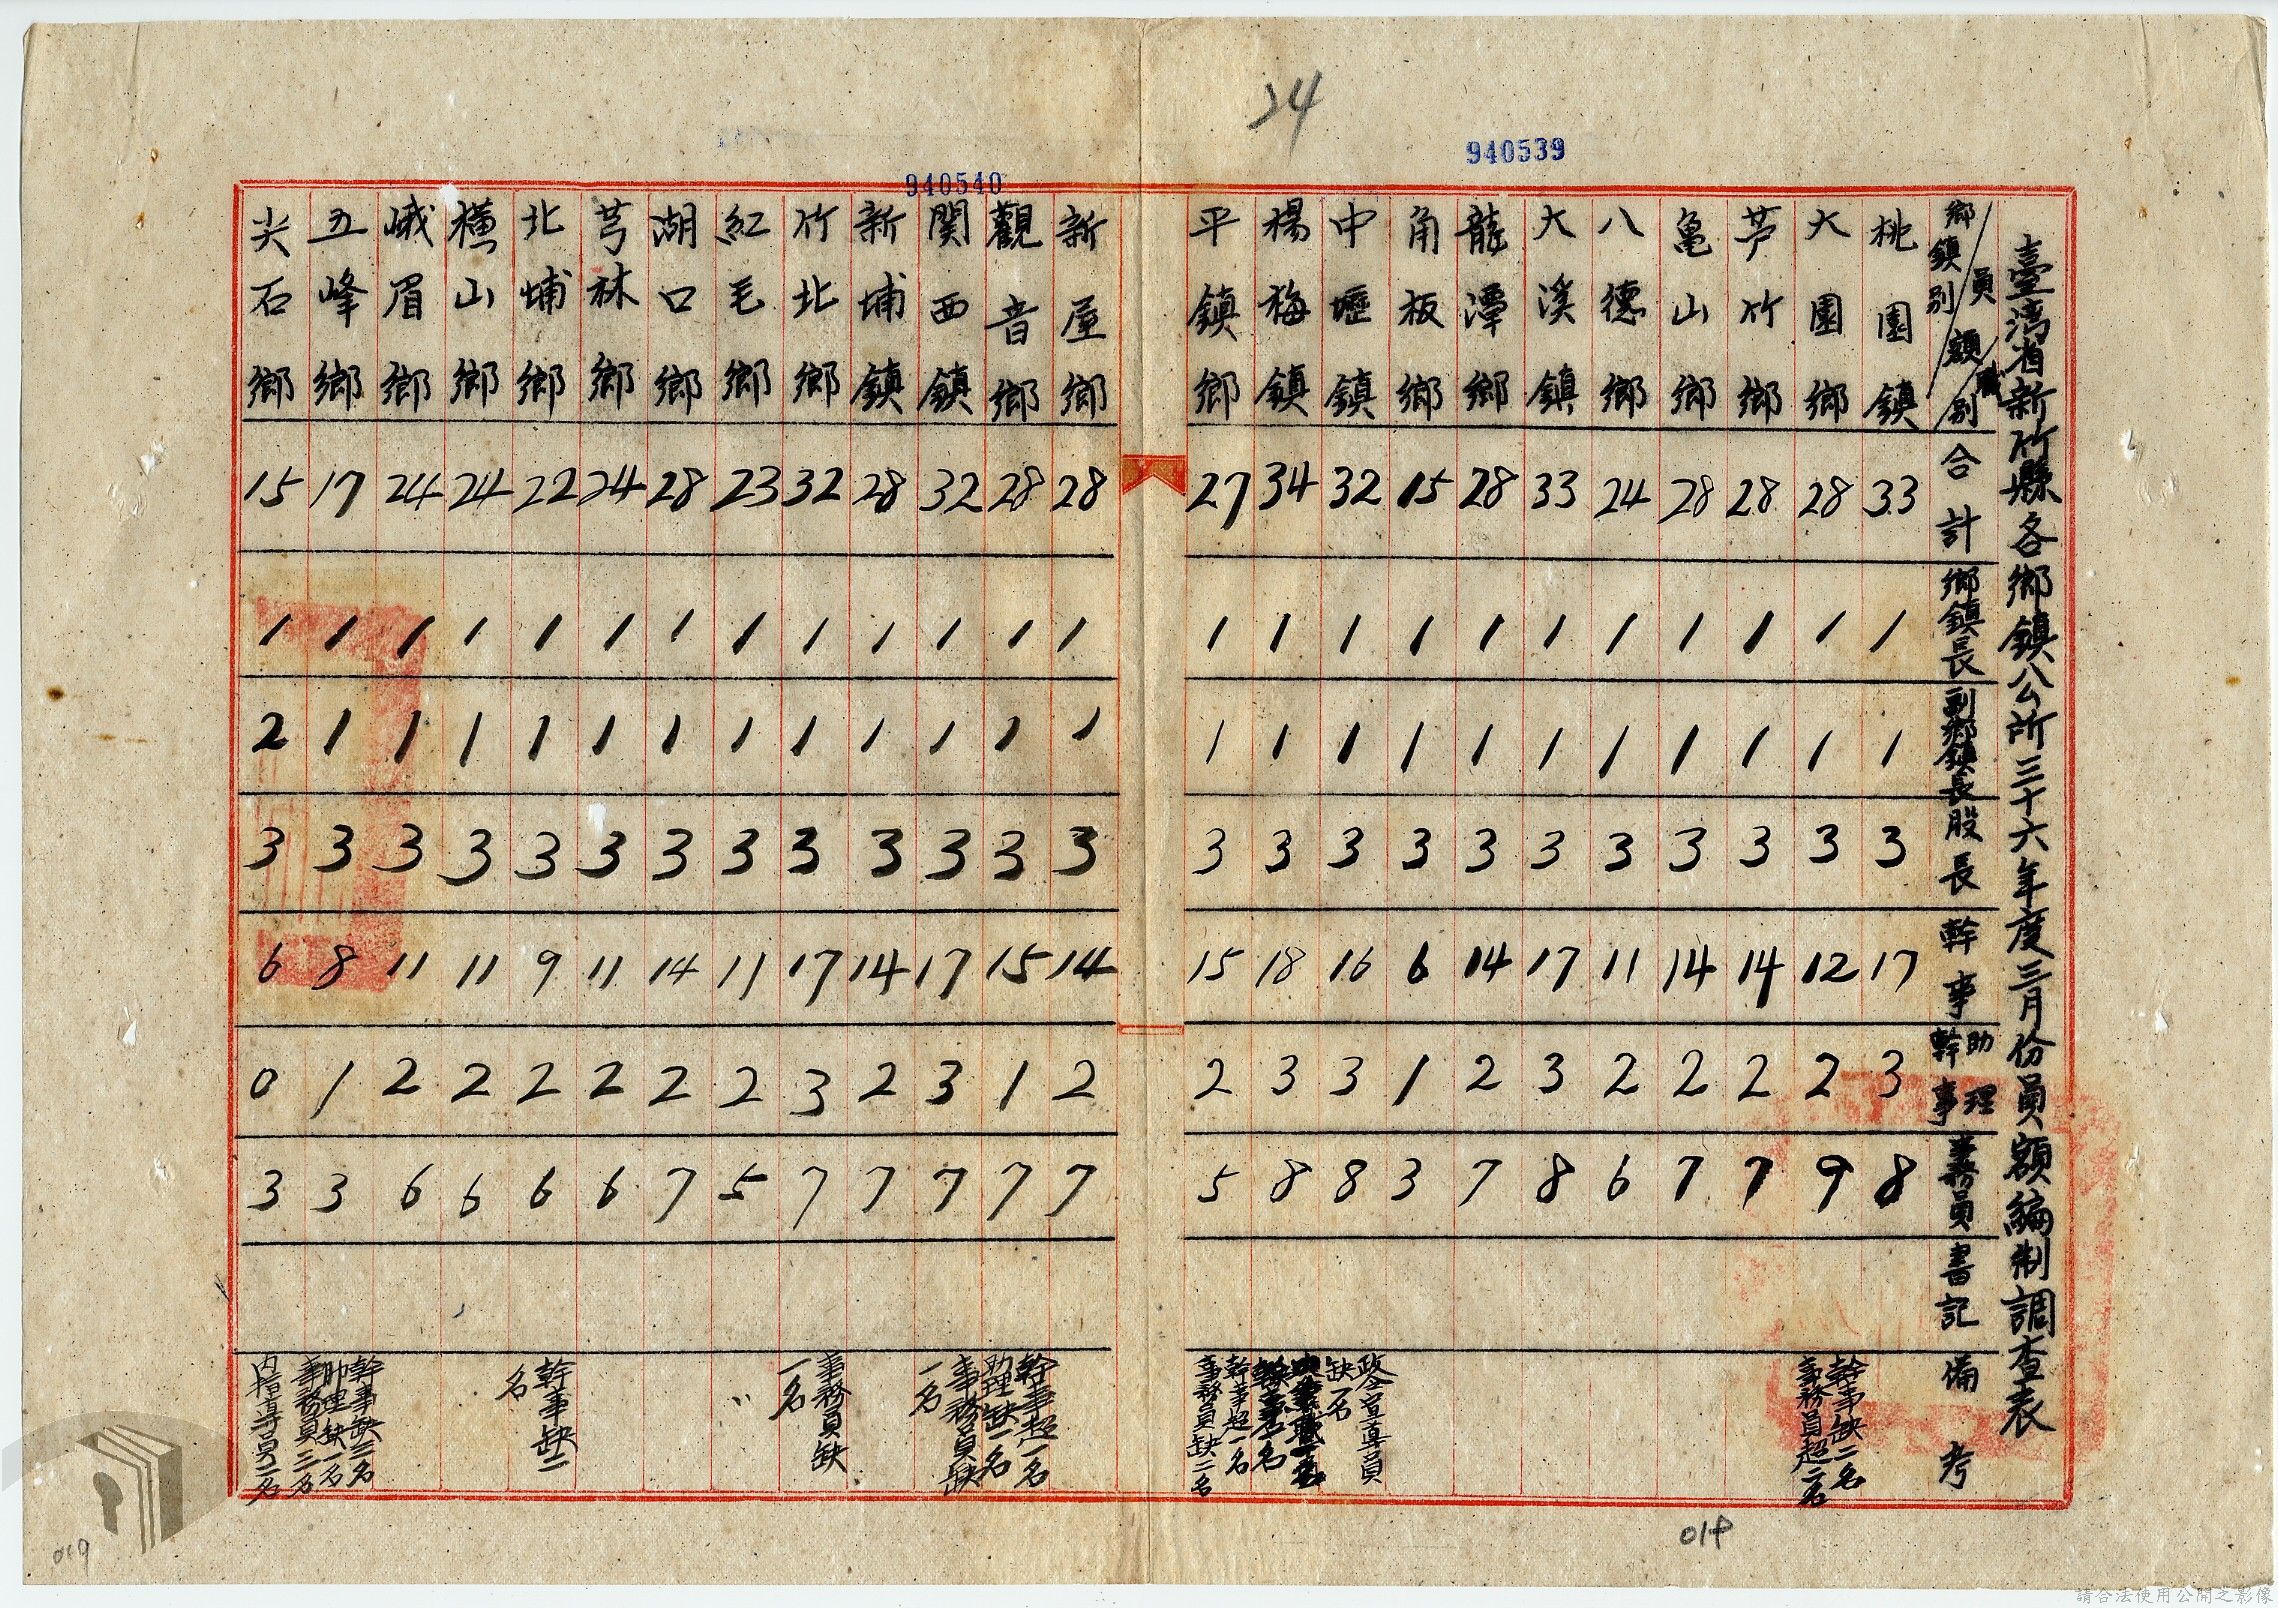 24
940539
940540
臺湾省新竹縣各鄉鎮公所三十六年度三月份員額編制調查表
鄉鎮別 員額 職別 合計 鄉鎮長 副鄉鎮長 股長 幹事 助理幹事 事務員 書記 備考
桃園鎮 33 1 1 3 17 3 8
大園鄉 28 1 1 3 12 2 9 幹事缺二名 事務員超二名
芦竹鄉 28 1 1 3 14 2 7
亀山鄉 28 1 1 3 14 2 7
八德鄉 24 1 1 3 11 2 6
大溪鎮 33 1 1 3 17 3 8
龍潭鄉 28 1 1 3 14 2 7
角板鄉 15 1 1 3 6 1 3
中壢鎮 32 1 1 3 16 3 8 政令宣導員缺一名
楊梅鎮 34 1 1 3 18 3 8
平鎮鄉 27 1 1 3 15 2 5 幹事超一名 事務員缺二名
新屋鄉 28 1 1 3 14 2 7
觀音鄉 28 1 1 3 15 1 7 幹事超一名 助理缺一名
関西鎮 32 1 1 3 17 3 7 事務員缺一名
新埔鎮 28 1 1 3 14 2 7
竹北鄉 32 1 1 3 17 3 7 事務員缺一名
紅毛鄉 23 1 1 3 11 2 5
湖口鄉 28 1 1 3 14 2 7
芎林鄉 24 1 1 3 11 2 6
北埔鄉 22 1 1 3 9 2 6 幹事缺二名
橫山鄉 24 1 1 3 11 2 6
峨眉鄉 24 1 1 3 11 2 6
五峰鄉 17 1 1 3 8 1 3 幹事缺三名 助理缺一名 事務員二名
尖石鄉 15 1 2 3 6 0 3 內指導員二名
019
請合法使用公開之影像